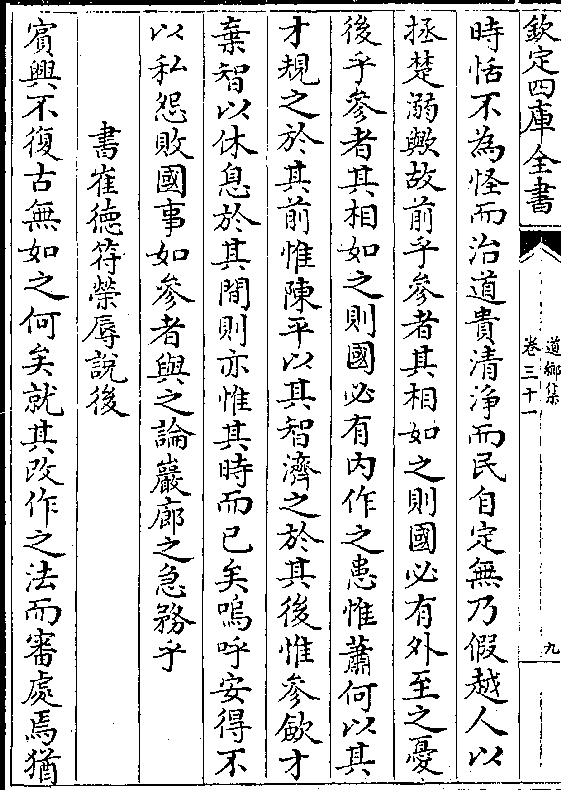 欽定四庫全書
道鄉集
卷三十一
九
時恬不為怪而治道貴清淨而民自定無乃假越人以
拯楚溺歟故前乎參者其相如之則國必有外至之憂
後乎參者其相如之則國必有內作之患惟蕭何以其
才規之於其前惟陳平以其智濟之於其後惟參歛才
棄智以休息於其間則亦惟其時而已矣嗚呼安得不
以私怨敗國事如參者與之論巖廊之急務乎
書崔徳符榮辱說後
賓興不復古無如之何矣就其改作之法而審處焉猶